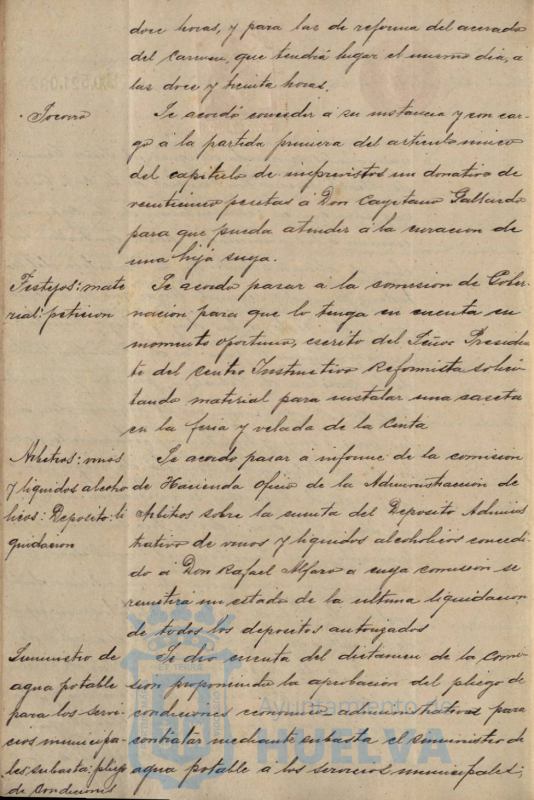 doce horas, y para las de reforma del acerado
del Carmen, que tendrá lugar el mismo dia, a
las doce y treinta horas.
Socorro
Se acordó conceder á su instancia y con car-
go á la partida primera del articulo unico
del capitulo de imprevistos un donativo de
veinticinco pesetas á Don Cayetano Gallardo
para que pueda atender á la curacion de
una hija suya.
Festejos: mate
rial: peticion
Se acordó pasar á la comision de Gober-
nacion para que lo tenga en cuenta en
momento oportuno, escrito del Señor Presiden-
te del Centro Instructivo Reformista solici-
tando material para instalar una caseta
en la feria y velada de la Cinta
Arbitrios: vinos
y liquidos alcoho
licos: Deposito: li
quidacion
Se acordó pasar á informe de la comision
de Hacienda oficio de la Administracion de
Arbitrios sobre la cuenta del Deposito Adminis
trativo de vinos y liquidos alcoholicos concedi-
do á Don Rafael Alfaro á cuya comision se
remitirá un estado de la ultima liquidacion
de todos los depositos autorizados
Suministro de
agua potable
para los servi-
cios municipa-
les; subasta; pliego
de condiciones
Se dio cuenta del dictamen de la Comi-
sion proponiendo la aprobacion del pliego de
condiciones economico-administrativas para
contratar mediante subasta el suministro de
agua potable á los servicios municipales;
Ayuntamiento de
HUELVA